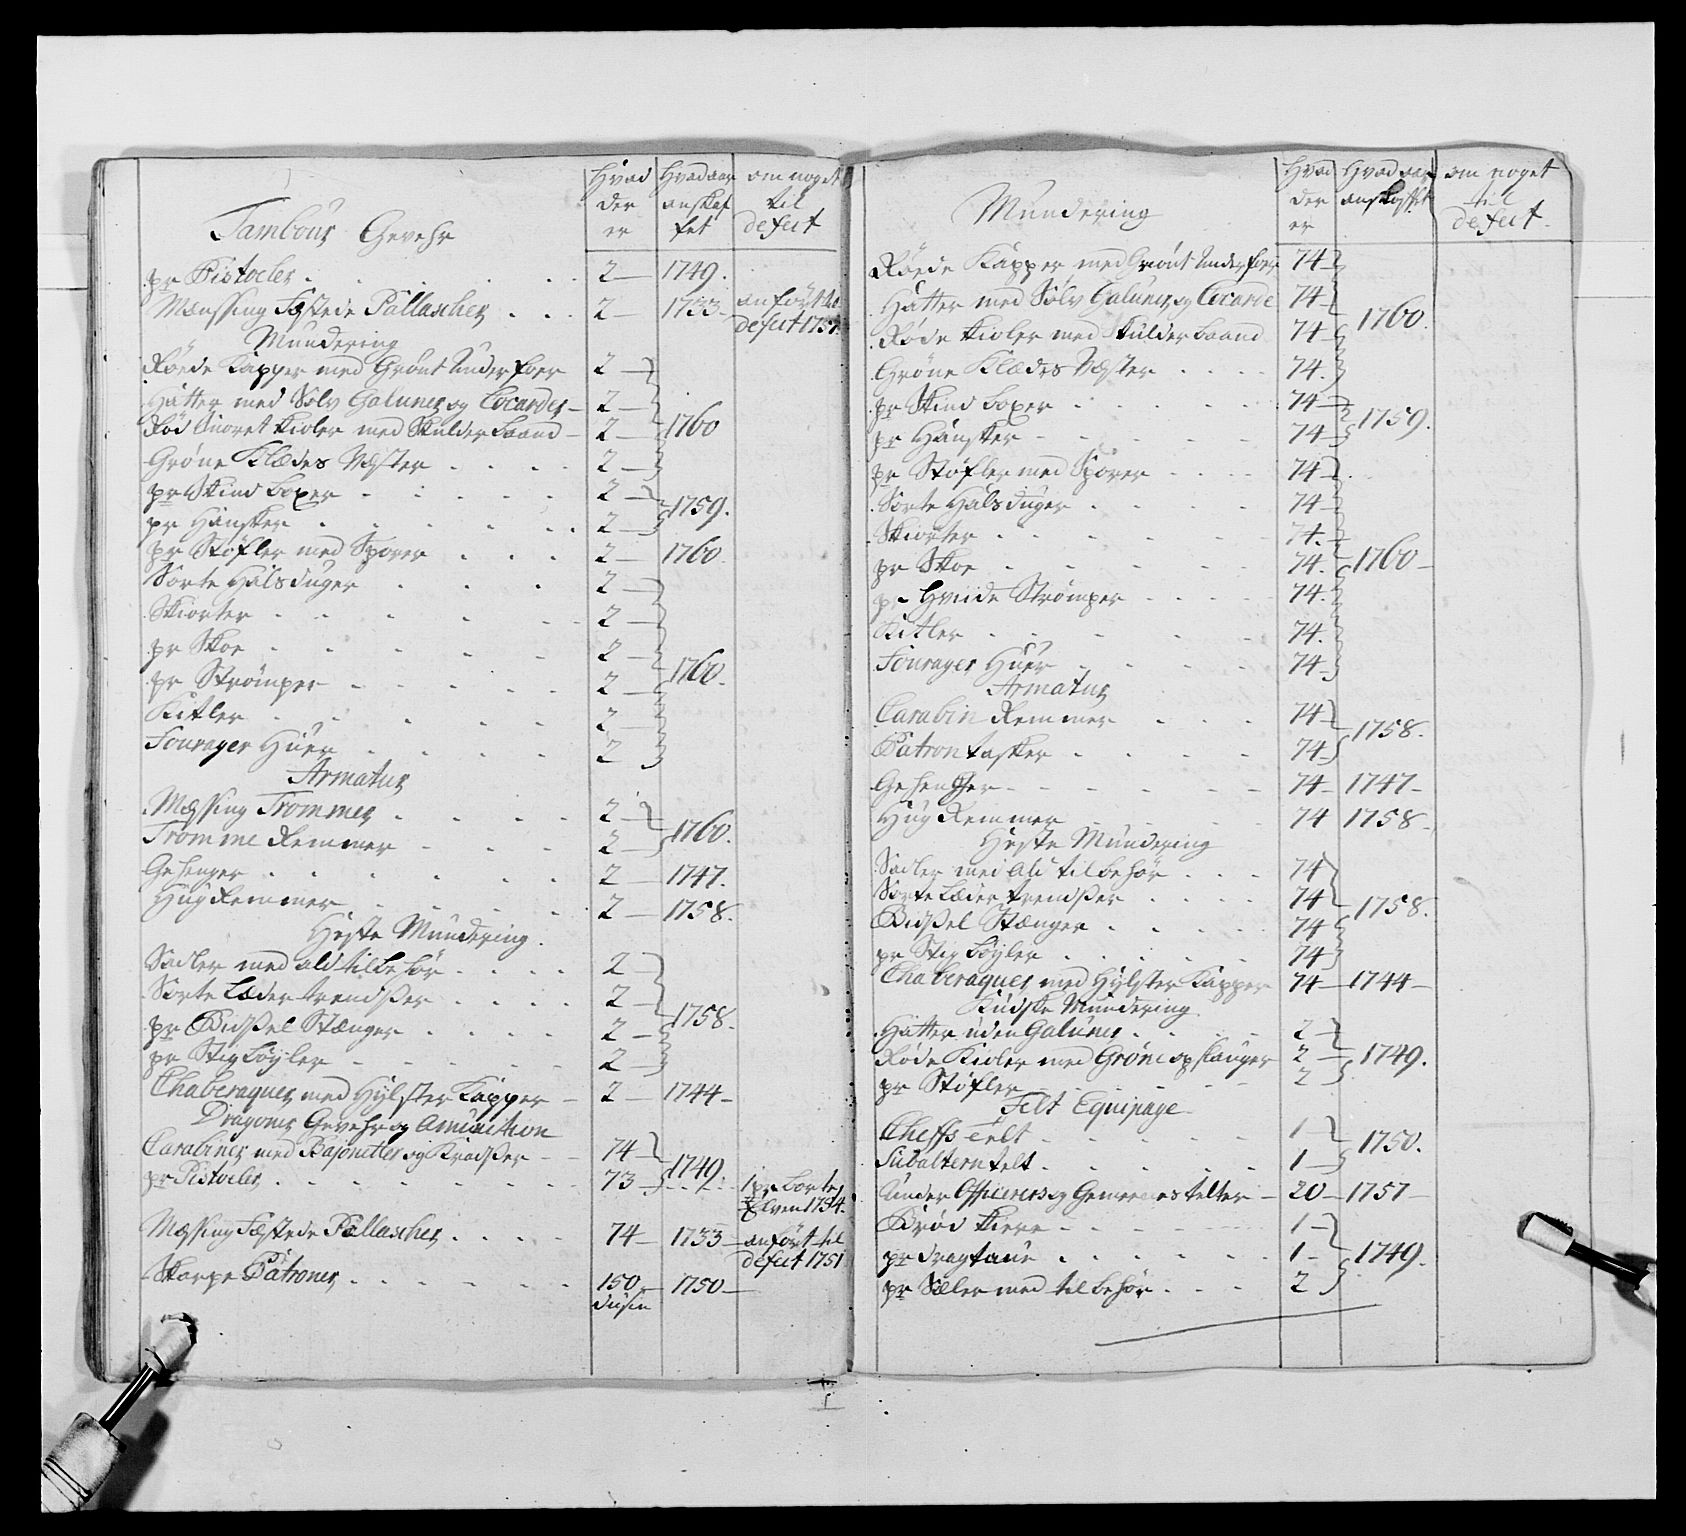 Tambours Gevehr
Hvad der er
Hvad aar anskaffet
om noget til defect
pr Pistoeler 2 1749.
Mænssing Fæstede Pallascher 2 1733 anfört til defect 1751
Mundering
Röede Kapper med Grönt Underfoer 2
Hatter med Sölv Galuner og Cocarder 2
Röd Snoret Kioler med Skulderbaand 2 1760
Gröne Klædes Vester 2
pr Skind boxer 2
pr Handsker 2 1759.
pr Stöfler med Sporer 2 1760
Sorte Halsduger 2
Skiorter 2
pr Skoe 2
pr Strömper 2 1760.
Kitler 2
Fourager Huer 2
Armatur
Messing Trommer 2
Tromme Remmer 2 1760.
Gehenger 2 1747.
Hug Remmer 2 1758.
Heste Mundering.
Sadler med ald tilbehör 2
Sorte Læder trendsser 2
pr Bidssel Stænger 2 1758.
pr Stigböyler 2
Chaberaquer med Hylster Kapper 2 1744
Dragoner Gevehr og Amunition
Carabiner med Bajonetter og Kradsser 74
pr Pistoeler 73 1749. 1 pr borte Elven 1754.
Messing Fæstede Pallascher 74 1733 anfört til defect 1751
Skarpe Patroner 150 dusin 1750
Mundering
Hvad der er
Hvad aar anskaffet
om noget til defect
Röede Kapper med Grönt Underfoer 74
Hatter med Sölv Galuner og Cocarde 74
Röde Kioler med Skulderbaand 74 1760
Gröne Klædes Vester 74.
pr Skind boxer 74
pr Handsker 74 1759.
pr Stöfler med Sporer 74
Sorte Halsduger 74
Skiorter 74.
pr Skoe 74. 1760
pr Hviide Strömper 74.
Kitler 74.
Fourager Huer 74
Armatur
Carabin Remmer 74
Patrontasker 74 1758.
Gehenger 74 1747
Hug Remmer 74 1758
Heste Mundering
Sadler med ald tilbehör 74
Sorte Læder trendsser 74
Bidssel Stænger 74 1758.
pr Stigböyler 74
Chaberaquer med Hylster Kapper 74 1744
Kudske Mundering
Hatter uden Galuner 2
Röde Kioler med Gröne opslauger 2 1749.
pr Stöfler 2
Felt Equipage
Cheffs telt 1
Subaltern telt 1 1750.
Under Officerers og Gemeenes telter 20 1757
Bröd Kiere 1
pr dragtaue 1 1749.
pr Sæler med tilbehör 2